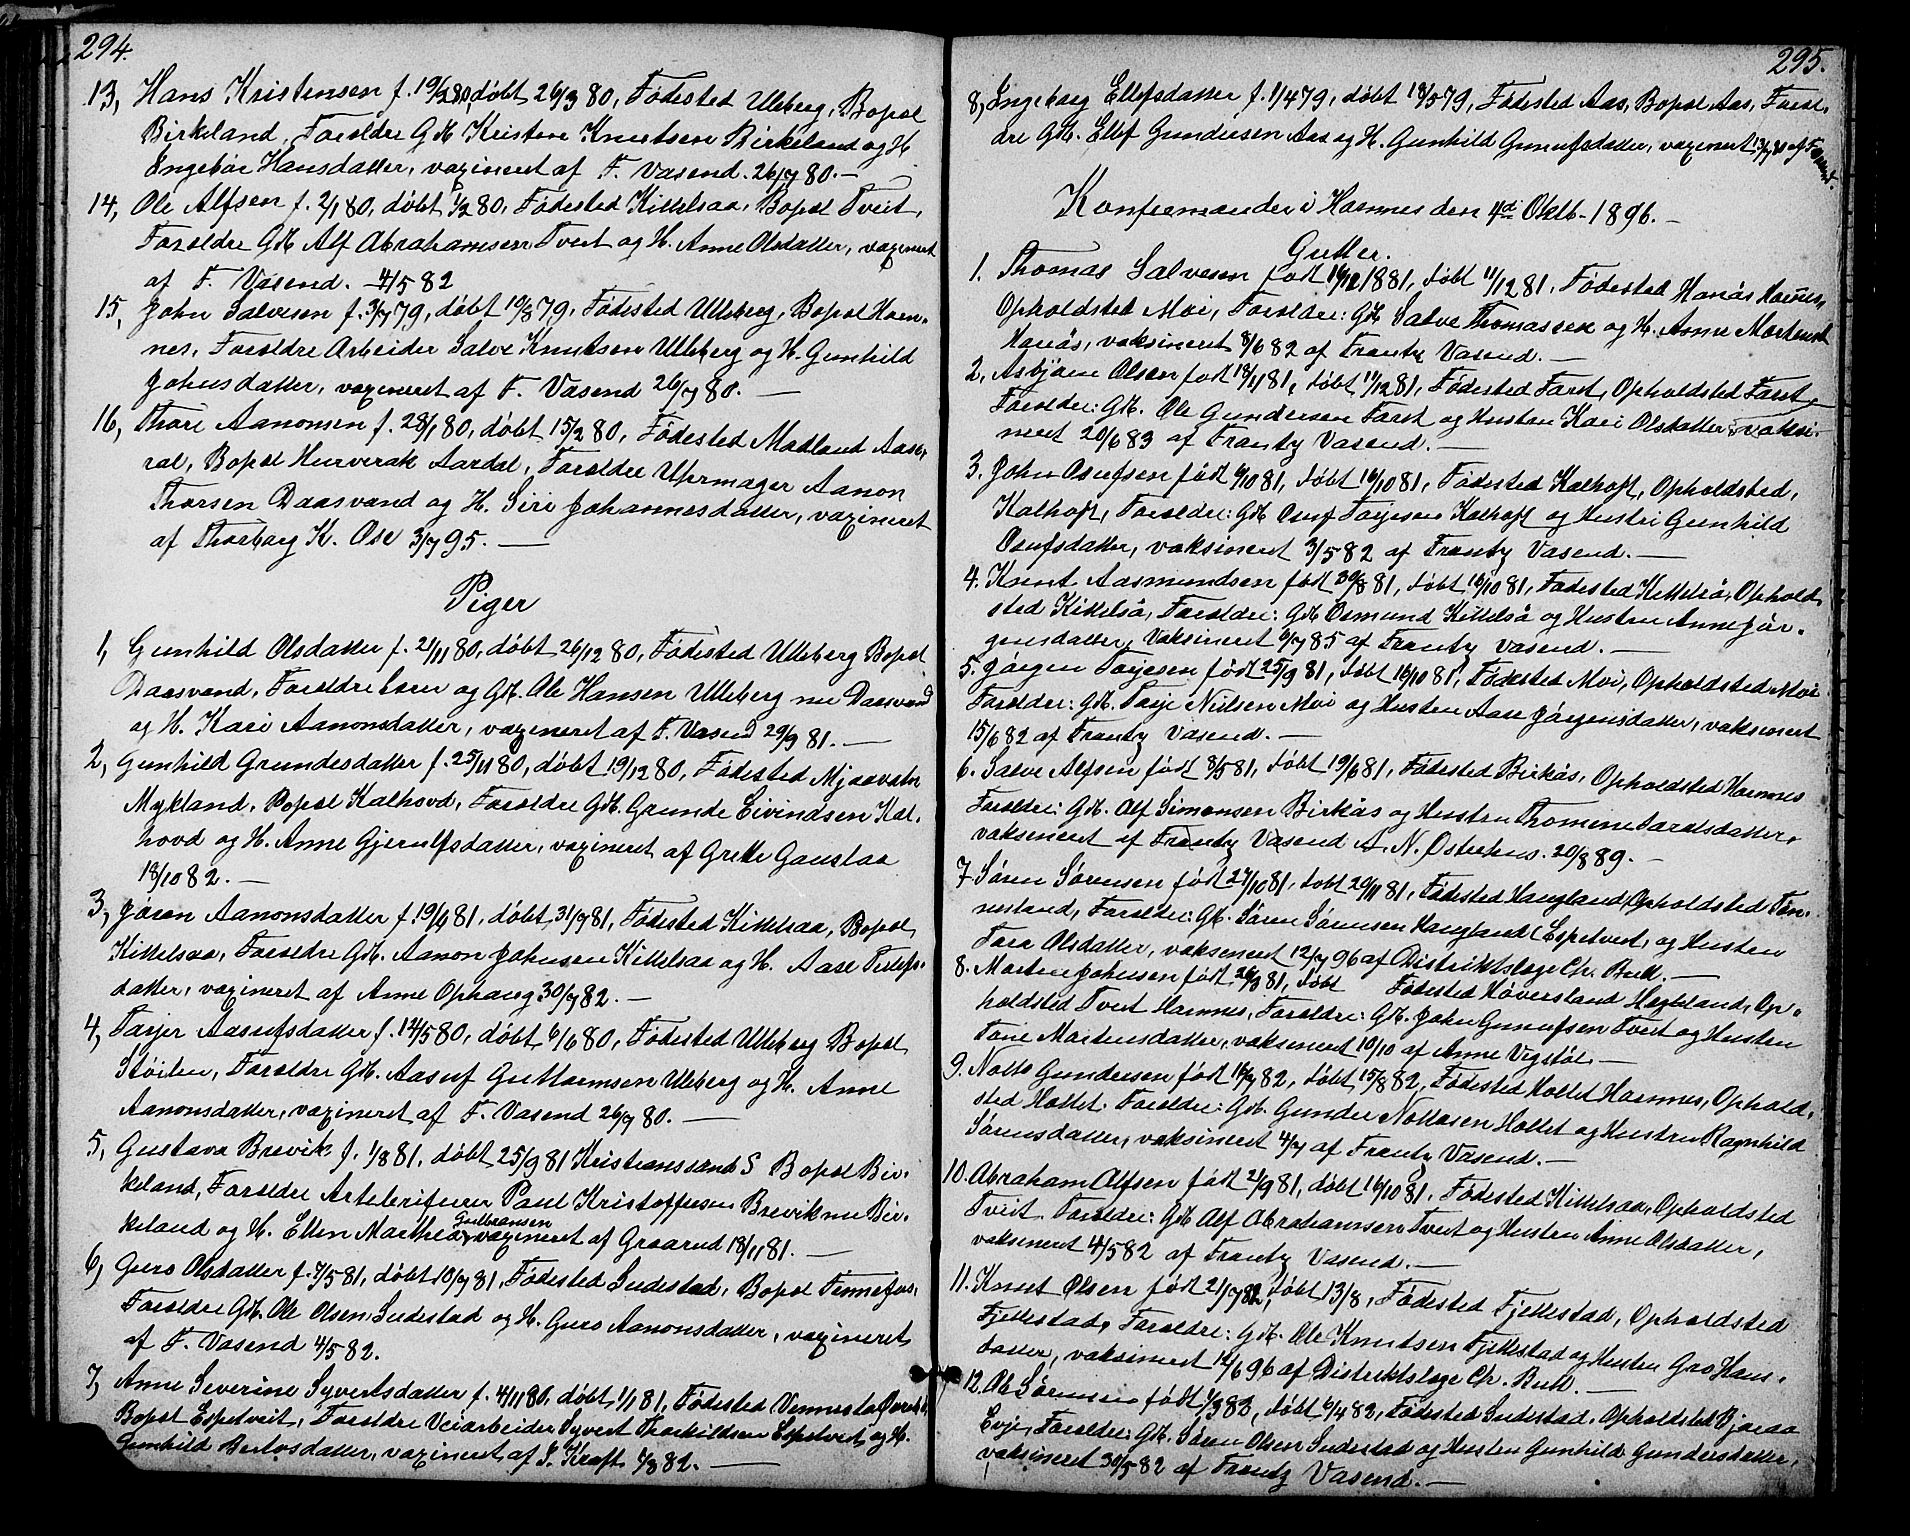 294.
13, Hans Kristensen f. 19/2 80, døbt 26/3 80, Fødested Uleberg, Bopæl
Birkeland, Foræld­re Gdr. Kristen Knutsen Birkeland og H.
Engebør Hansdatter, vaxineret af F. Vasend. 26/7 80. —
14, Ole Alfsen f. 2/1 80, døbt 1/2 80, Fødested Kittelsaa, Bopæl Tveit,
Forældre Gdr. Alf Abrahamsen Tveit og H. Anne Olsdatter, vaxineret
af F. Vasend. 4/5 82
15, John Salvesen f. 3/7 79, døbt 10/8 79, Fødested Uleberg, Bopæl Horn-
nes, Forældre Arbeider Salve Knutsen Uleberg og H. Gunhild
Johnsdatter, vaxineret af F. Vasend 26/7 80. —
16, Thore Aanonsen f. 28/1 80, døbt 15/2 80, Fødested Madland Aase-
ral, Bopæl Hurverak Aardal, Forældre Uhrmager Aanon
Thorsen Daasvand og H. Siri Johannesdatter, vaxineret
af Thorborg K. Ose 3/7 95. —
Piger
1, Gunhild Olsdatter f. 21/11 80, døbt 26/12 80, Fødested Uleberg Bopæl
Daasvand, Forældre og Gdr. Ole Hansen Uleberg nu Daasvand
og H. Kari Aanonsdatter, vaxineret af F. Vasend 29/9 81. —
2, Gunhild Grundesdatter f. 25/11 80, døbt 19/12 80, Fødested Mjaavatn
Mykland, Bopæl Kalhovd, Forældre Gdr. Grunde Eivindsen Kal-
hovd og H. Anne Gjerulfsdatter, vaxineret af Grethe Gauslaa
18/10 82. —
3, Jøren Aanonsdatter f. 19/6 81, døbt 31/7 81, Fødested Kittelsaa, Bopæl
Kittelsaa, Forældre Gdr. Aanon Johnsen Kittelsaa og H. Aase Tellefs-
datter, vaxineret af Anne Ophaug 30/7 82. —
4, Tarjer Aasufsdatter f. 14/5 80, døbt 6/6 80, Fødested Uleberg Bopæl
Støilen, Forældre Gdr. Aasuf Guttormsen Uleberg og H. Anne
Aanonsdatter, vaxineret af F. Vasend 26/7 80. —
5, Gustava Brevik f. 1/8 81, døbt 25/9 81 Kristianssand S Bopæl Bir-
keland, Forældre Paul Kristoffersen Brevik nu Bir-
keland og H. Ellen Marthea Gulbransen vaxineret af Graarud 18/11 81. —
6, Guro Olsdatter f. 7/5 81, døbt 10/7 81, Fødested Sudestad, Bopæl Fennefos,
Forældre Gdr. Ole Olsen Sudestad og H. Guro Aanonsdatter, vaxineret
af F. Vasend 4/5 82.
7, Anne Severine Syvertsdatter f. 4/11 80, døbt 1/1 81, Fødested Vennesla
Bopæl Espetveit, Forældre Veiarbeider Syvert Thorkildsen Espetveit og H.
Gunhild Bertosdatter, vaxineret af J. Kraft 4/8 82. —
295.
8, Engeborg Ellefsdatter f. 1/4 79, døbt 18/5 79, Fødested Aas, Bopæl Aas, Foræl-
dre Gdr. Ellef Gundersen Aas og H. Gunhild Gunufsdatter, vaxineret 13/7 80 af F. Vasend.
Konfirmander i Hornnes den 4de Oktb. 1896. —
Gutter.
1. Thomas Salvesen født 16/12 1881, døbt 11/12 81, Fødested Honås Hornnes,
Opholdsted Moi, Forældre: Gdr. Salve Thomassen og H. Anne Mortensd.
Honås, vaksineret 8/6 82 af Frantz Vasend. —
2, Asbjørn Olsen født 18/11 81, døbt 11/12 81, Fødested Farst, Opholdsted Farst,
Forældre: Gdr. Ole Gundersen Farst og Hustru Kari Olsdatter, vaksi-
neret 20/6 83 af Frantz Vasend. —
3. John Osufsen født 6/10 81, døbt 16/10 81, Fødested Kalhoft, Opholdsted,
Kalhoft, Forældre: Gdr Osuf Torjesen Kalhoft og Hustru Gunhild
Osufsdatter, vaksineret 3/5 82 af Frantz Vasend. —
4. Knut Aasmundsen født 30/8 81, døbt 16/10 81, Fødested Kittelså, Ophold-
sted Kittelså, Forældre: Gdr. Osmund Kittelså og Hustru Anne Jør-
gensdatter, vaksineret 6/7 85 af Frantz Vasend. —
5. Jørgen Torjesen født 25/9 81, døbt 16/10 81, Fødested Moi, Opholdsted Moi
Forældre: Gdr. Torje Nielsen Moi og Hustru Aase Jørgensdatter, vaksineret
15/6 82 af Frantz Vasend. —
6. Salve Alfsen født 8/5 81, døbt 19/6 81, Fødested Birkås, Opholdsted Hornnes
Forældre: Gdr. Alf Simonsen Birkås og Hustru Thomine Taraldsdatter,
vaksineret af Frantz Vasend A. N. Osterhus. 20/8 89. —
7 Søren Sørensen født 27/10 81, døbt 20/11 81, Fødested Haugland, Opholdsted Røn-
nesland, Forældre: Gdr. Søren Sørensen Haugland (Espetveit, og Hustru
Tora Olsdatter, vaksineret 12/7 96 af Distriktslæge Chr. Bull. —
8. Morten Johnsen født 26/9 81, døbt     Fødested Høversland Hægeland, Op-
holdsted Tveit Hornnes, Forældre: Gdr. John Gunufsen Tveit og Hustru
Tone Mortensdatter, vaksineret 10/10 af Anne Vegstøl —
9. Notto Gundersen født 16/7 82, døbt 15/8 82, Fødested Hollet Hornnes, Ophold-
sted Hollet. Forældre: Gdr. Gunder Nottosen Hollet og Hustru Ragnhild
Sørensdatter, vaksineret 4/7 af Frantz Vasend. —
10. Abraham Alfsen født 2/9 81, døbt 16/10 81. Fødested Kittelsaa, Opholdsted
Tveit. Forældre: Gdr Alf Abrahamsen Tveit og Hustru Anne Olsdatter,
vaksineret 4/5 82 af Frantz Vasend. —
11. Knut Olsen født 21/7 82, døbt 13/8, Fødested Fjellestad, Opholdsted
Fjellestad, Forældre: Gdr. Ole Knutsen Fjellestad og Hustru Gro Han-
datter, vaksineret 12/6 96 af Distriktslæge Chr. Bull. —
12. Ole Sørensen født 1/3 82, døbt 6/4 82, Fødested Sudestad, Opholdsted Bjoraa
Evje, Forældre: Gdr. Søren Olsen Sudestad og Hustru Gunhild Gundersdatter,
vaksineret 30/5 82 af Frantz Vasend. —